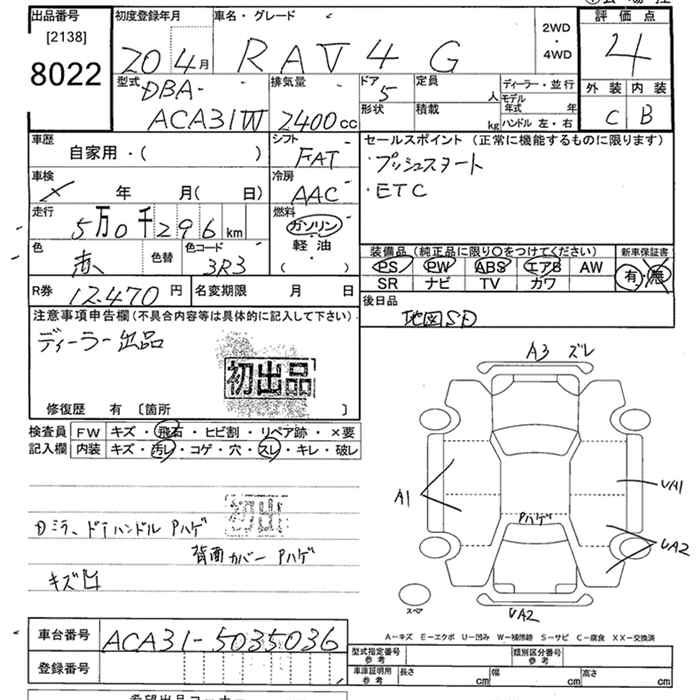 出品番号
[2138]
8022
初度登録年月
20年4月
車名・グレード
RAV4 G
2WD
・
4WD
評価点
4
外装 内装
C B
型式 DBA-
ACA31W
排気量
2400cc
ドア 5
形状
定員 人
積載 kg
ディーラー・並行
モデル年式 年
ハンドル 左・右
車歴
自家用・( )
シフト
FAT
セールスポイント (正常に機能するものに限ります)
・プッシュスタート
・ETC
車検
年 月( 日)
冷房
AAC
走行
5万0千296km
燃料
ガソリン
軽油
( )
色
赤
色替
色コード
3R3
装備品 (純正品に限り○をつけてください)
PS PW ABS エアB AW
SR ナビ TV カワ
新車保証書
有・無
R券 12,470円
名変期限 月 日
後日品
地図SD
注意事項申告欄(不具合内容等は具体的に記入して下さい)
ディーラー出品
初出品
修復歴 有 〔箇所 〕
検査員
記入欄
FW キズ・飛石・ヒビ割・リペア跡・×要
内装 キズ・汚レ・コゲ・穴・スレ・キレ・破レ
初出
ミラー、ドアハンドル Pハゲ
背面カバー Pハゲ
キズ凹
A3 ズレ
A1
UA1
Pハゲ
UA2
スペア
UA2
A－キズ E－エクボ U－凹み W－補修跡 S－サビ C－腐食 XX－交換済
車台番号 ACA31-5035036
登録番号
型式指定番号
参考
類別区分番号
参考
車庫証明用
参考
長さ cm
幅 cm
高さ cm